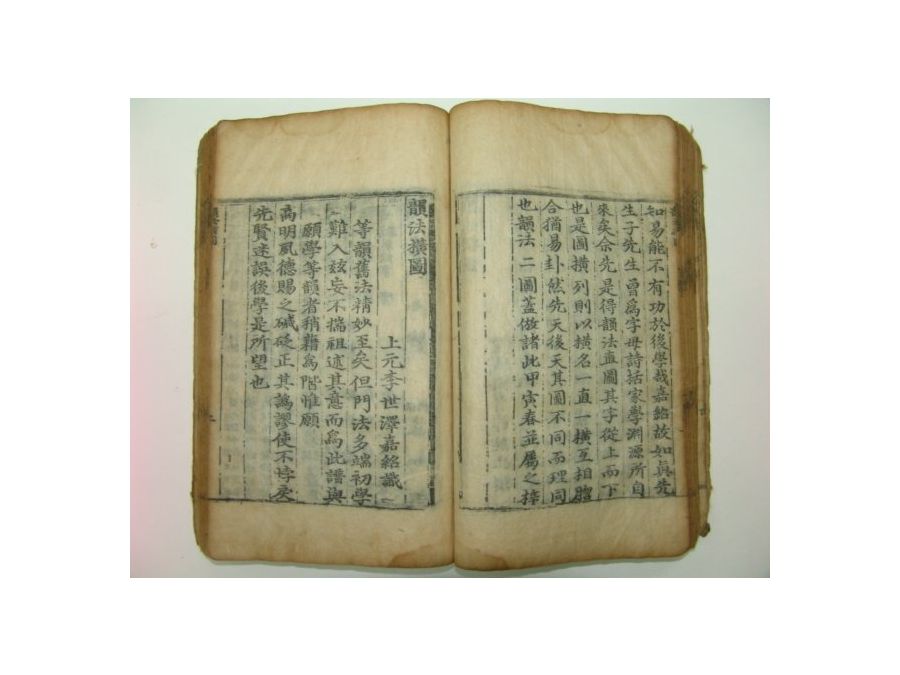 知易能不有功於後學哉嘉紹故如眞先
生子先生曾爲字母詩括家學淵源所自
來矣余先是得韻法直圖其字從上而下
也是圖橫列則以橫名一直一橫互相脗
合猶易卦然先天後天其圖不同而理同
也韻法二圖蓋倣諸此甲寅春並屬之梓
韻法橫圖
上元李世澤嘉紹識
等韻舊法精妙至矣但門法多端初學
難入玆妄不揣祖述其意而爲此譜與
願學等韻者稍藉爲階惟願
高明風德賜之碱砭正其譌謬使不悖戾
先賢迷誤後學是所望也